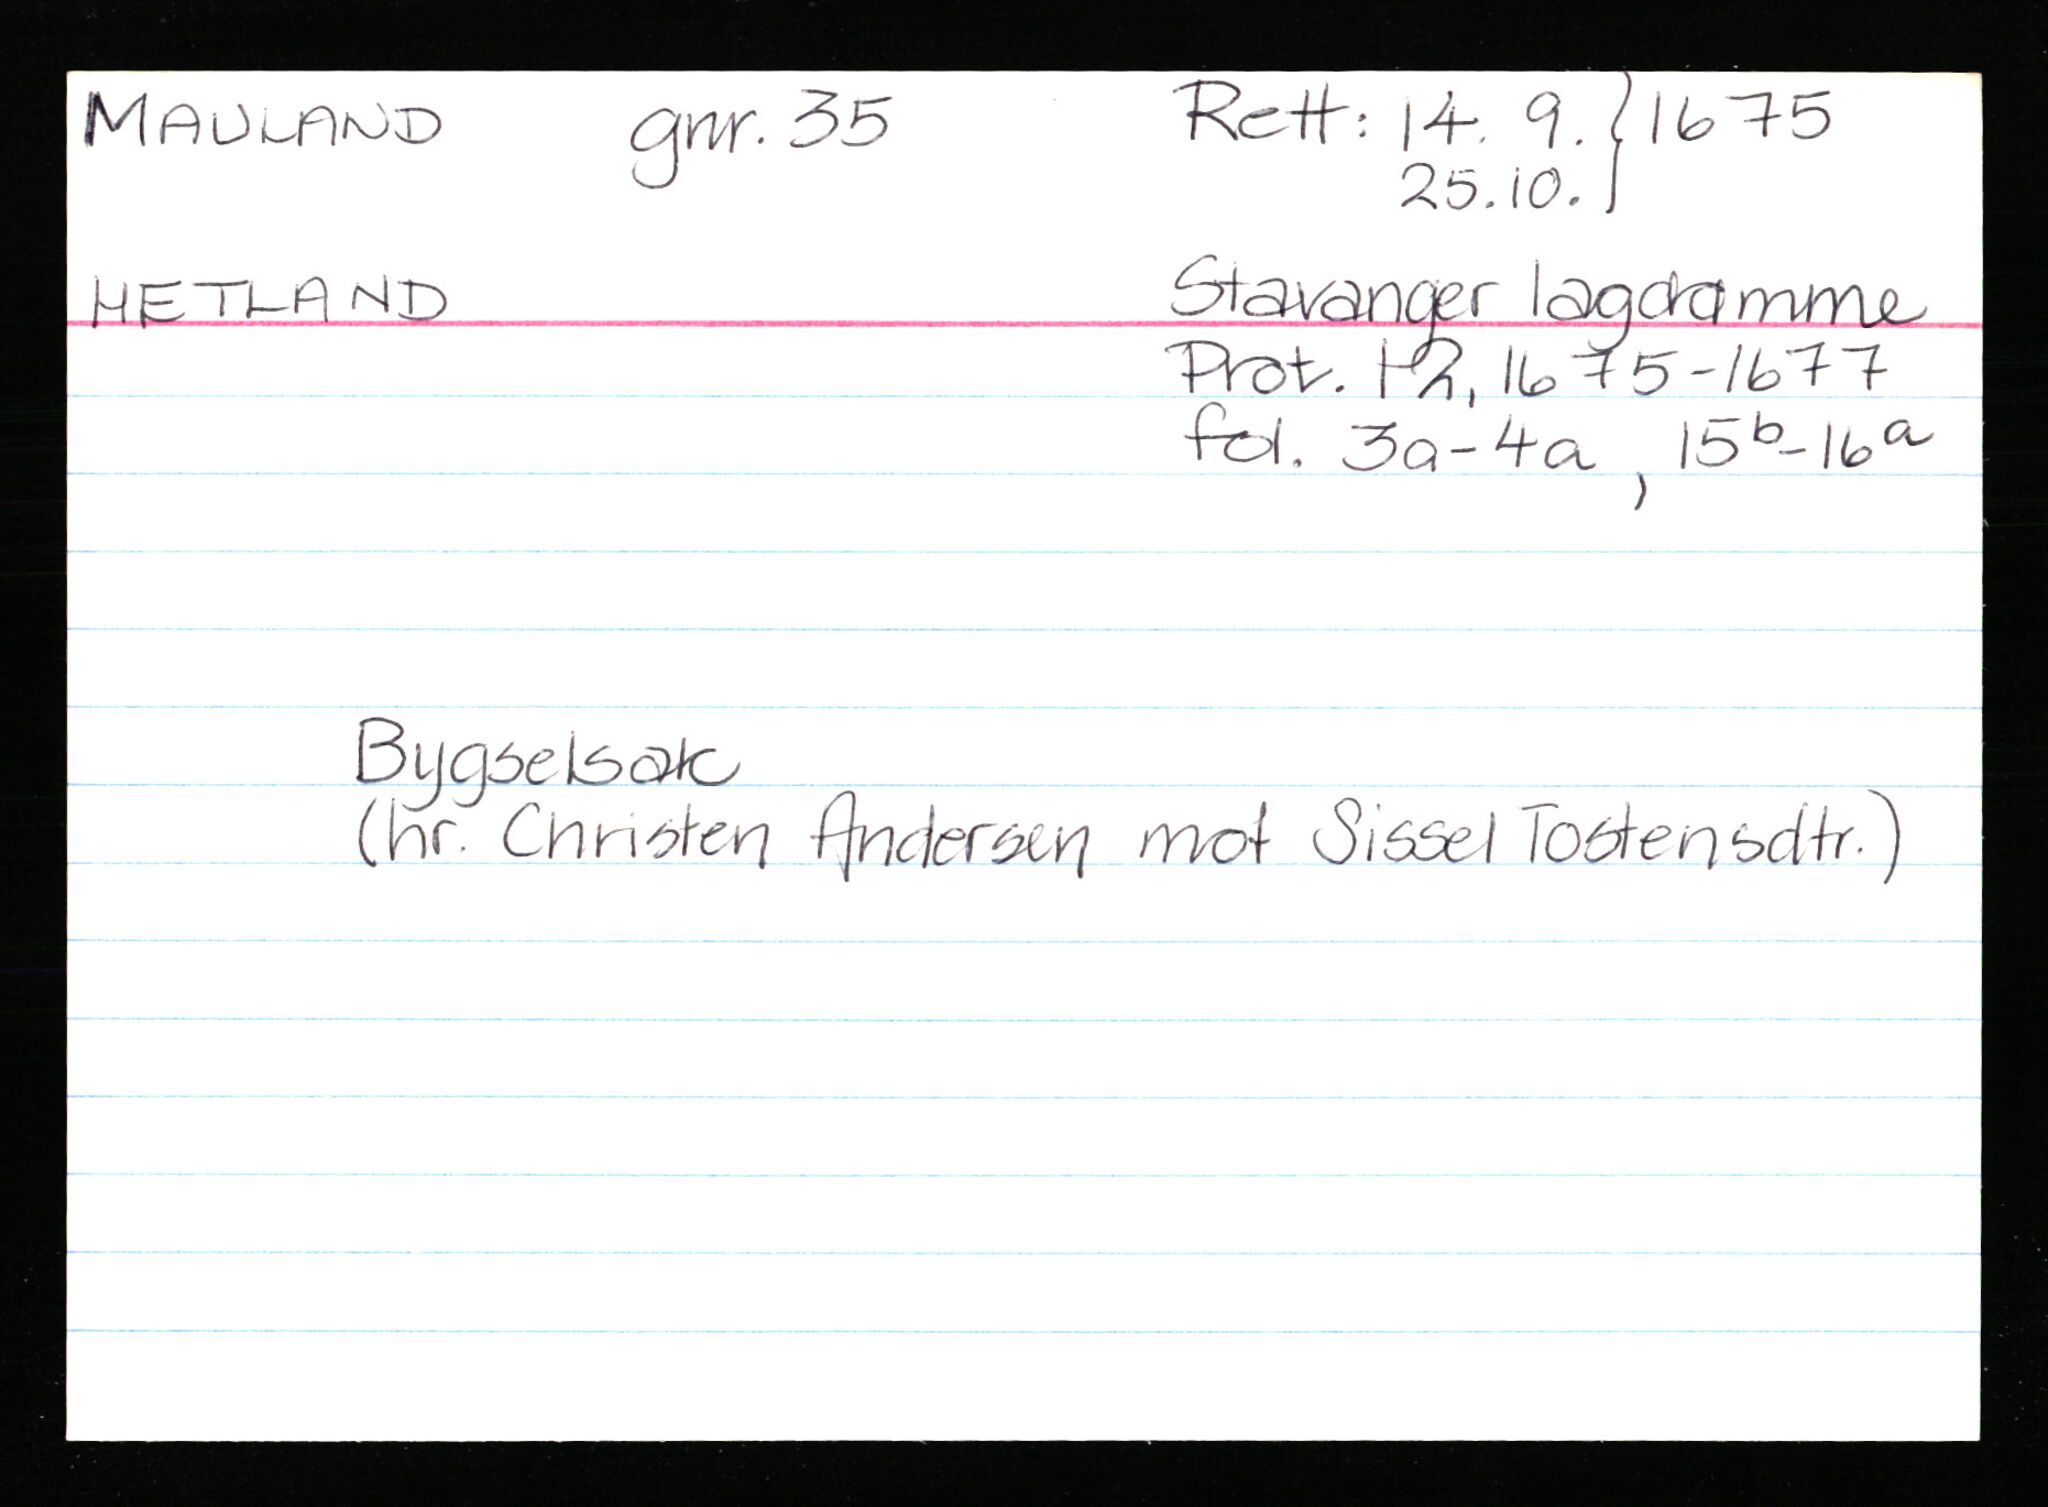 MAULAND gnr. 35 Rett: 14. 9. } 1675
25.10.
HETLAND Stavanger lagdømme
Prot. 12, 1675-1677
fol. 3a-4a, 15b-16a
Bygselsak
(hr. Christen Andersen mot Sissel Tostensdtr.)